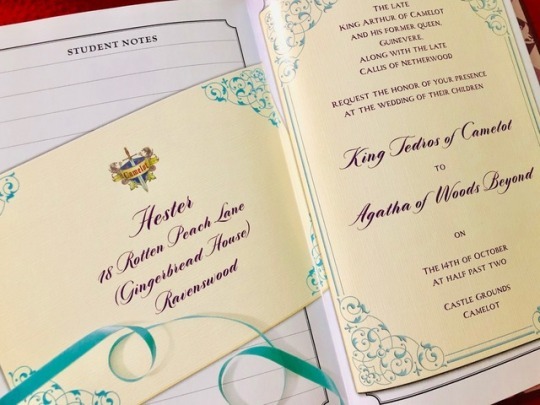 STUDENT NOTES
Camelot
Hester
18 Rotten Peach Lane
(Gingerbread House)
Ravenswood
THE LATE
KING ARTHUR OF CAMELOT
AND HIS FORMER QUEEN,
GUINEVERE,
ALONG WITH THE LATE
CALLIS OF NETHERWOOD
REQUEST THE HONOR OF YOUR PRESENCE
AT THE WEDDING OF THEIR CHILDREN
King Tedros of Camelot
TO
Agatha of Woods Beyond
ON
THE 14TH OF OCTOBER
AT HALF PAST TWO
CASTLE GROUNDS
CAMELOT